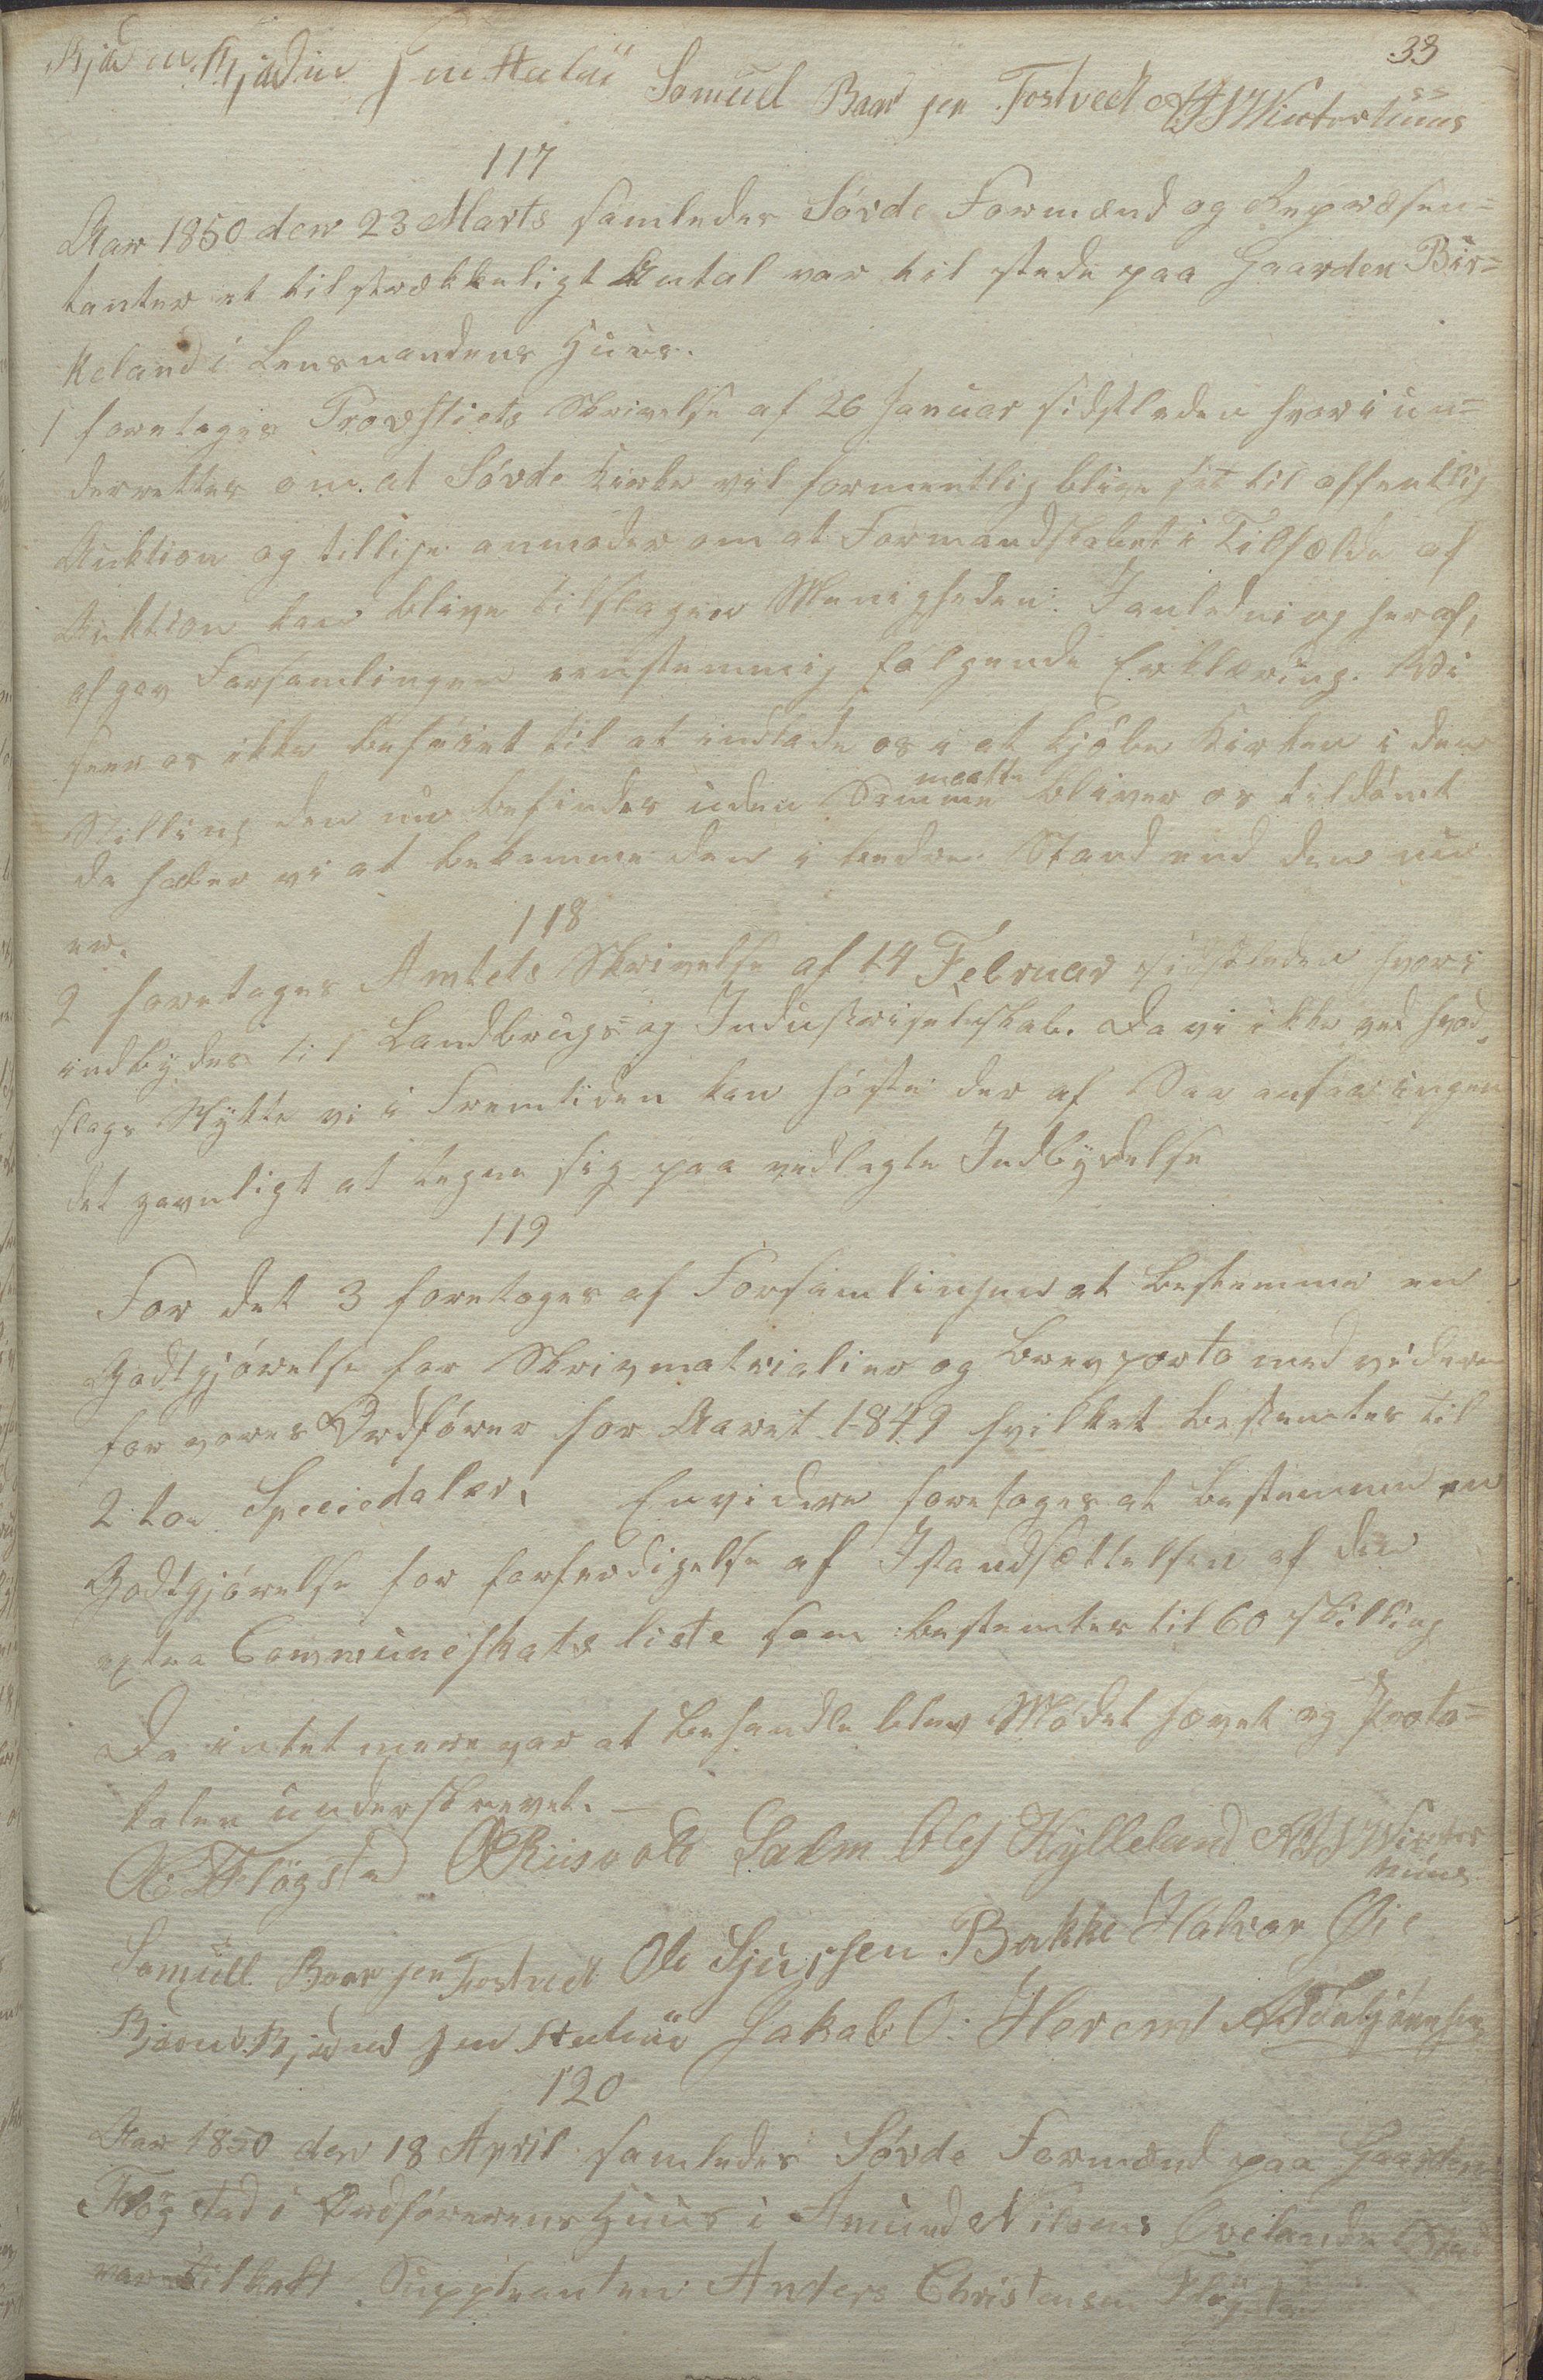 33
Samuel Baar sen Tostvedt Winterhuus
117
Aar 1850 den 23 Marts samledes Sövde Formænd og Repræsen=
tanter et tilstrækkeligt Antal var til stede paa Gaarden Bir=
keland i Lensmandens Huus.
1 foretoges Provstiets Skrivelse af 26 Januar sidstleden hvori un=
derrettes om at Sövde Kirke vil formentlig blive sat til offentlig
Auktion og tillige anmoder om at Formandskabet i Tilfælde af
Auktion kan blive tilslagen Menigheden. I anledni og heraf,
afgav Forsamlingen eenstemmig følgende Erklæring. Vi
seer os ikke beföiet til at indlade os i at kjöbe Kirken i den
Stilling den nu befindes uden Somme maatte bliver os tildömt
da haaber vi at bekomme den i bedre Stand end den nu
er.
118
2 foretoges Amtets Skrivelse af 14 Februar sidstleden hvori
indbydes til Landbrugs= og Industriselskab. Da vi ikke ved hvad
slags Nytte vi i Fremtiden kan höste der af Saa ansaa ingen
det gavnligt at tegne sig paa vedlagte Indbydelse
119
For det 3 foretoges af Forsamlingen at bestemme en
Godtgjörelse for Skrivmatrialier og Brevporto med videre
for vores Ordförer for Aaret 1849 hvilket bestemtes til
2 toe Speciedaler. Envidere foretoges at bestemme en
Godtgjörelse for forferdigelse af Istandsættelsen af den
extra Communeskats liste som bestemtes til 60 skilling
Da intet mere var at behandle blev Mödet hævet og Proto=
kolen underskrevet. —
Flögstad Riisvold Salm Olsf Hylleland Winter
huus
Samuel Baar sen Tostvedt Ole Sjursen Bakke Halvor Øie
Jakob O. Herem Torbjörnsen
120
Aar 1850 den 18 April samledes Sövde Formænd paa Gaarden
Flögstad i Ordförerens Huus i Amund Nilsens Qvelands Sted
var tilkaldt Suppleanten Anders Christensen Flögstad